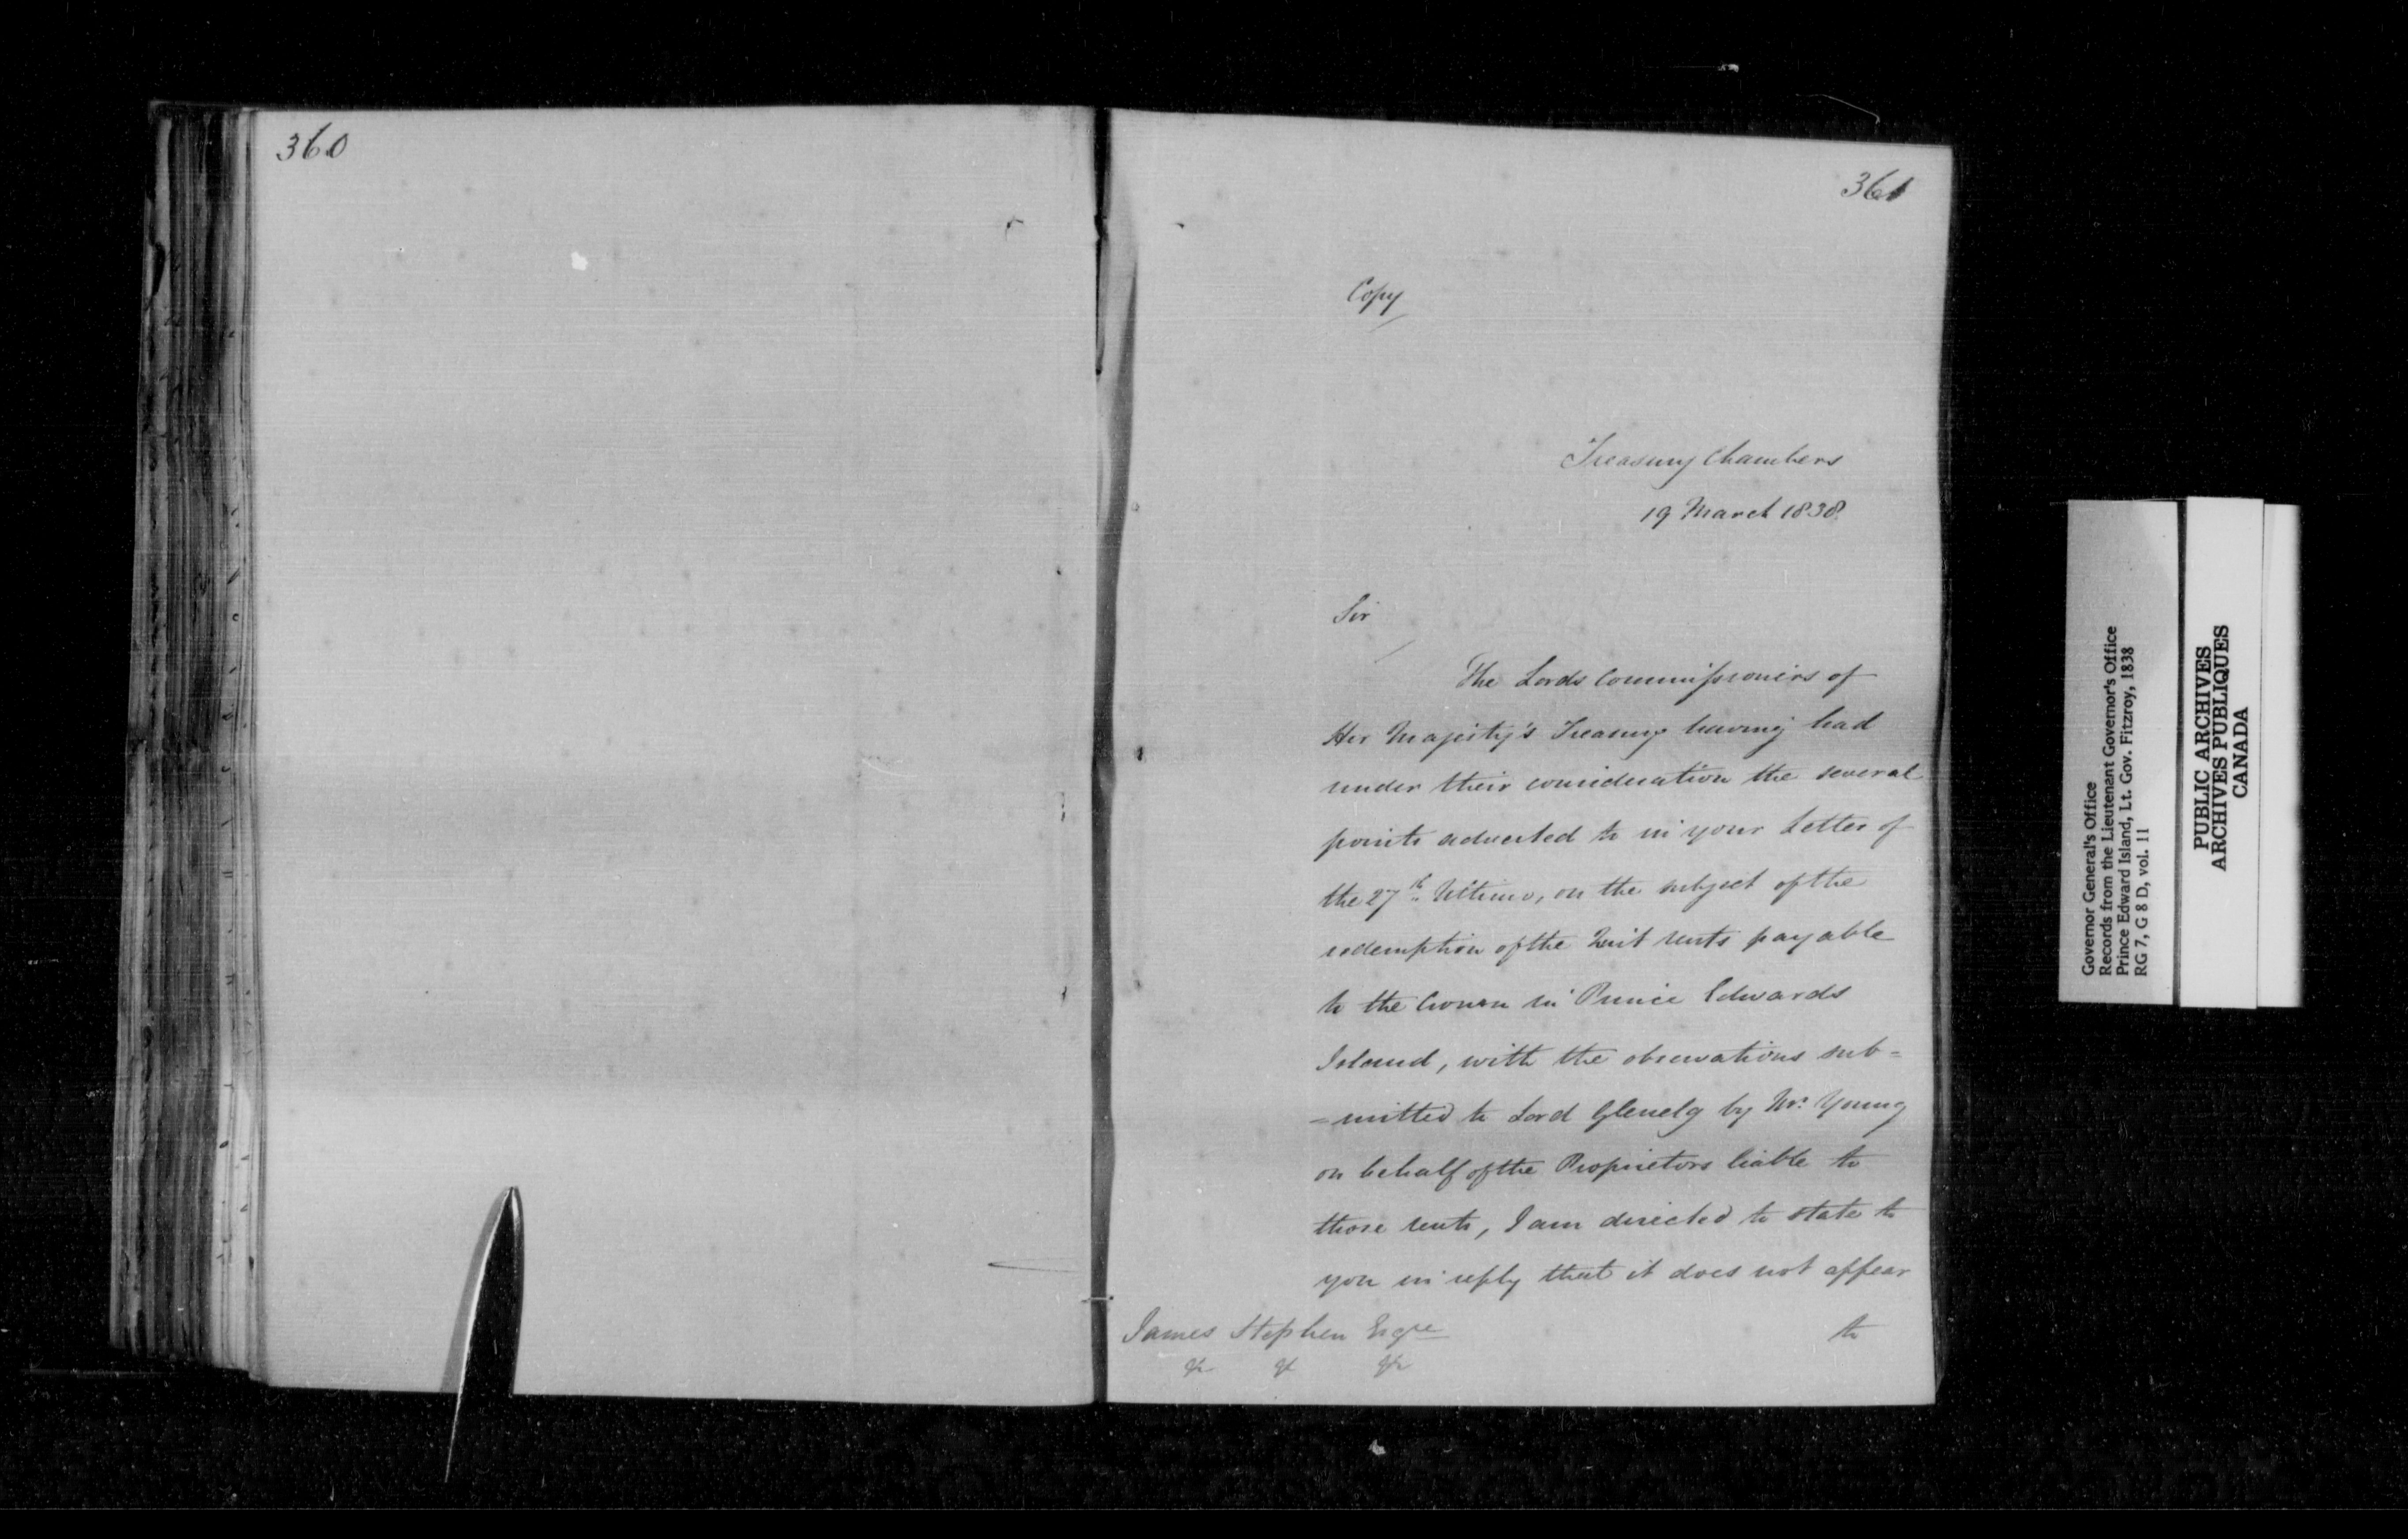 360
361
Copy
Treasury Chambers
19 March 1838.
Sir
The Lords Commissioners of
Her Majesty's Treasury having had
under their consideration the several
points adverted to in your Letter of
the 27th Ultimo, on the subject of the
redemption of the Quit rents payable
to the Crown in Prince Edwards
Island, with the observations sub=
=mitted to Lord Glenelg by Mr. Young
on behalf of the Proprietors liable to
those rents, I am directed to state to
you in reply that it does not appear
to
James Stephen Esqre
&c &c &c
Governor General's Office
Records from the Lieutenant Governor's Office
Prince Edward Island, Lt. Gov. Fitzroy, 1838
RG 7, G 8 D, vol. 11
PUBLIC ARCHIVES
ARCHIVES PUBLIQUES
CANADA